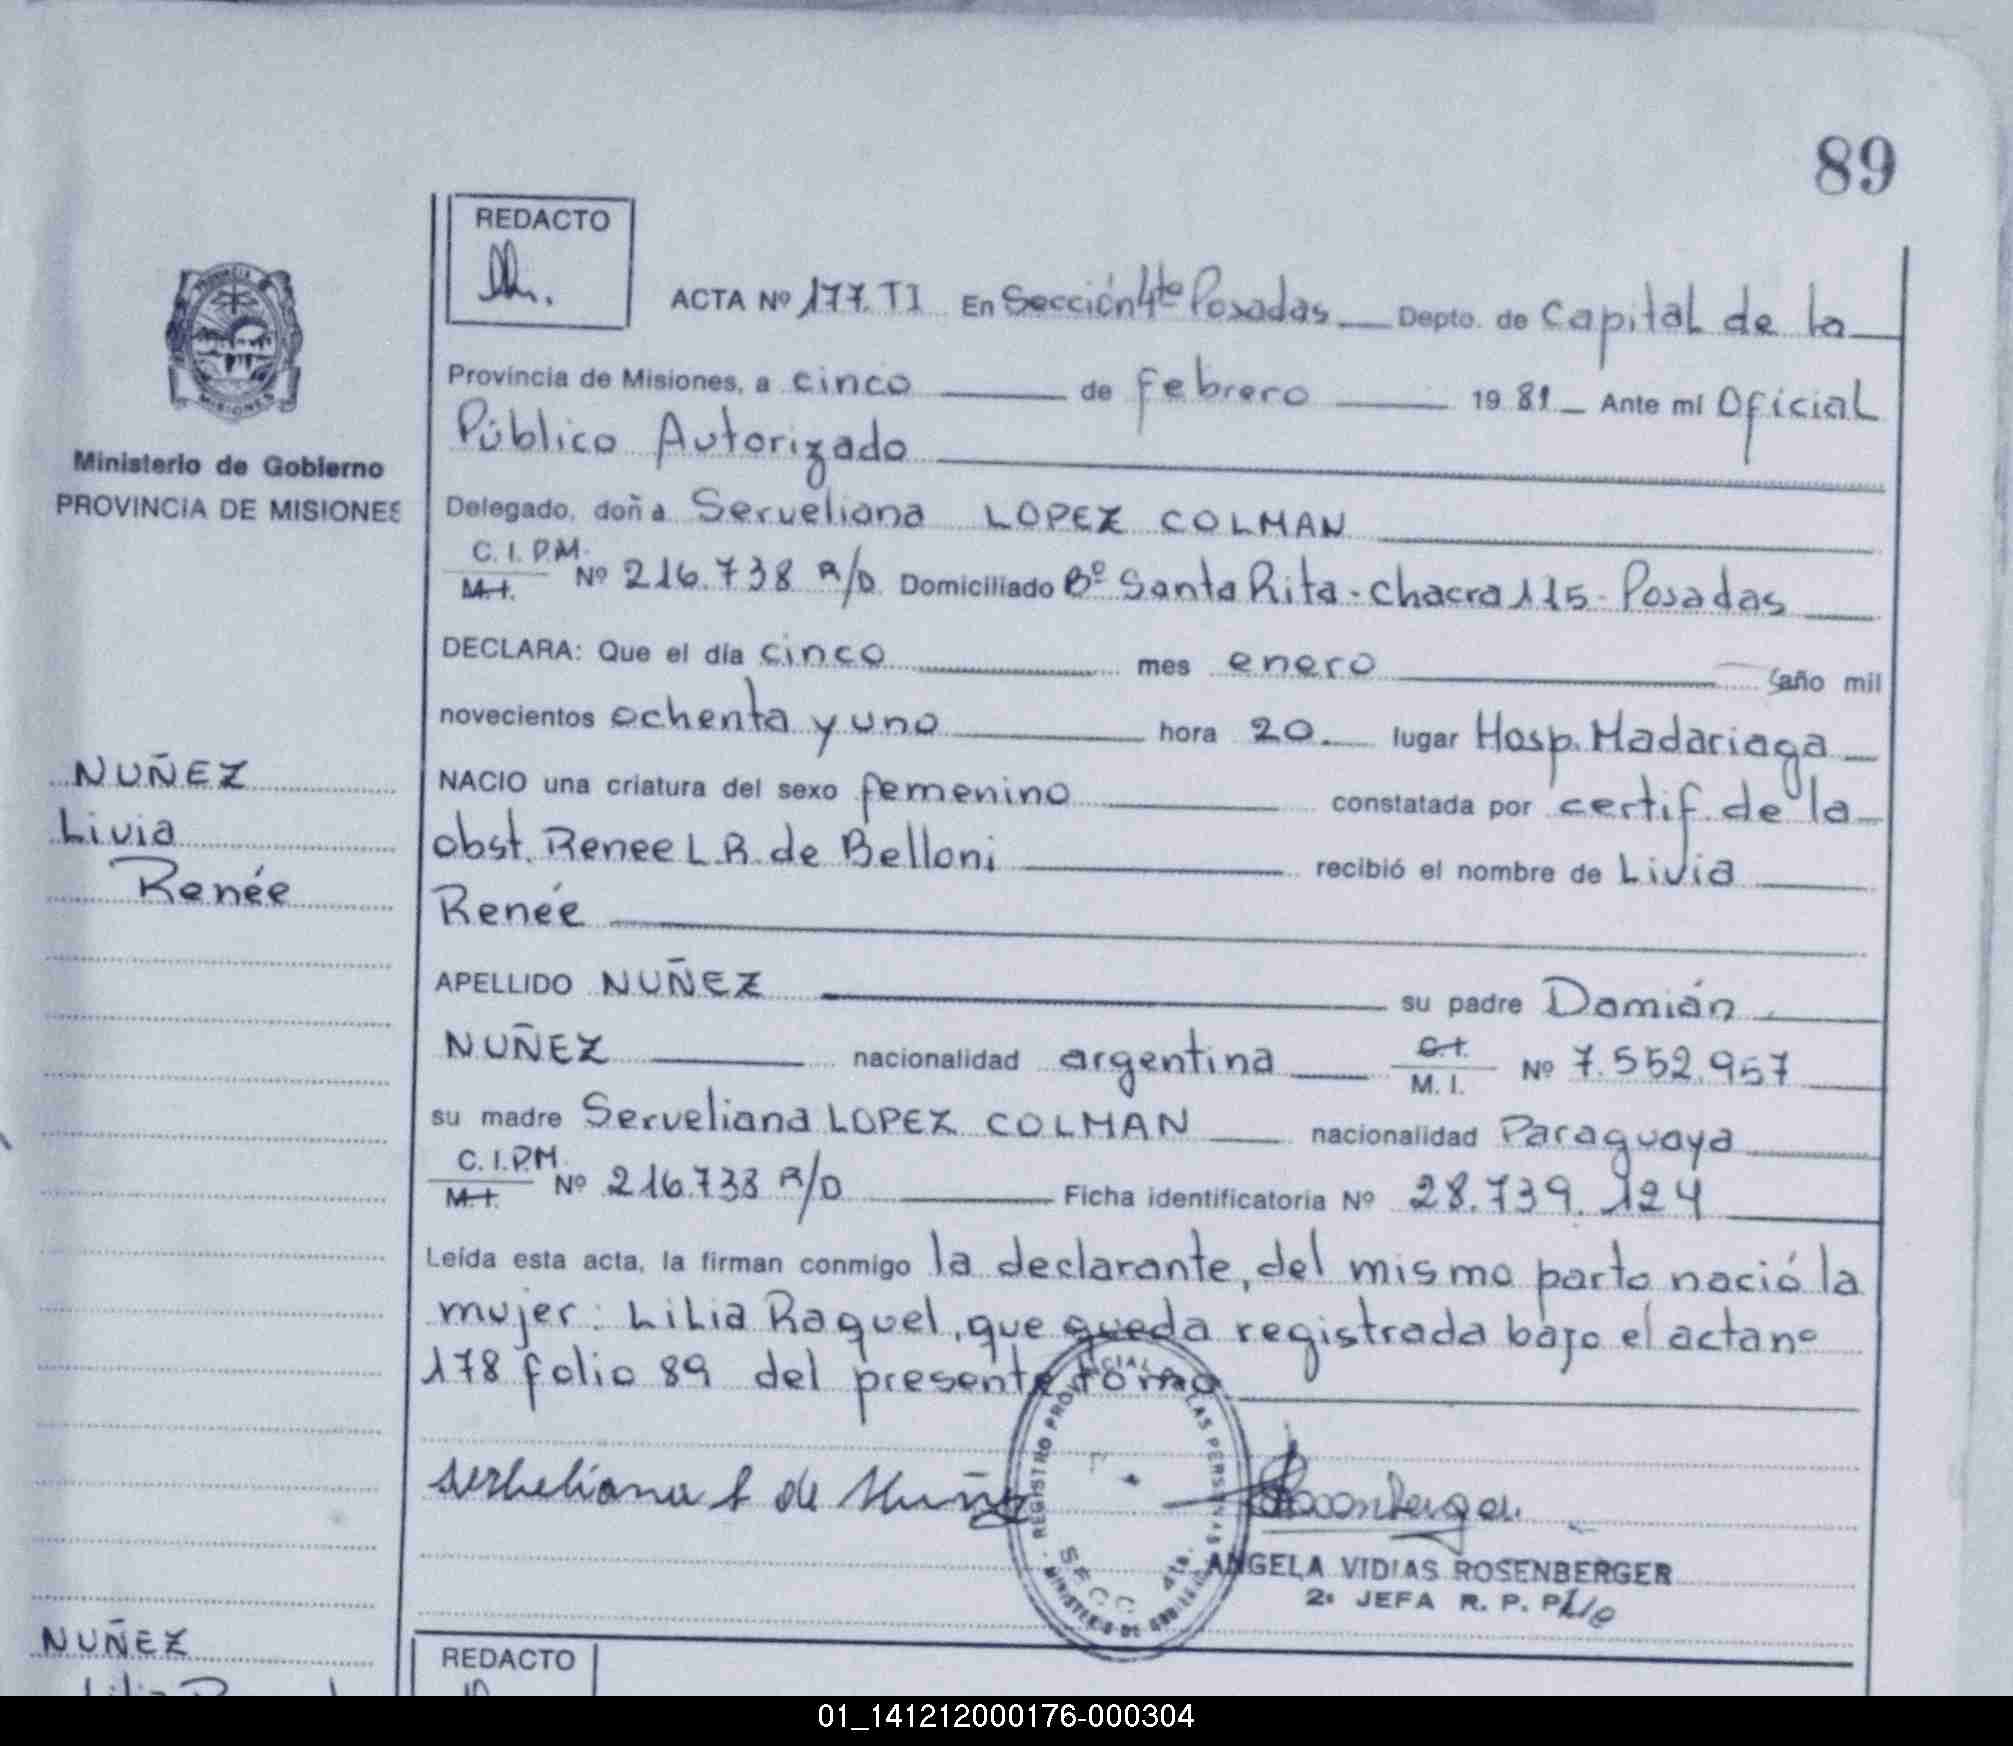 89
REDACTO
ACTA Nº 177. TI En Sección 4ta Posadas Depto. de Capital de la
Provincia de Misiones, a cinco de febrero 1981 Ante mí Oficial
Público Autorizado
Delegado, doña Serveliana LOPEZ COLMAN
C.I.P.M.
M.I. Nº 216.738 R/D Domiciliado Bº Santa Rita - Chacra 115 - Posadas
DECLARA: Que el día cinco mes enero año mil
novecientos ochenta y uno hora 20. lugar Hosp. Madariaga
NACIO una criatura del sexo femenino constatada por certif. de la
obst. Renee L.R. de Belloni recibió el nombre de Livia
Renée
APELLIDO NUÑEZ su padre Damián
NUÑEZ nacionalidad argentina C.I.
M.I. Nº 7.552.957
su madre Serveliana LOPEZ COLMAN nacionalidad Paraguaya
C.I.P.M.
M.I. Nº 216.738 R/D Ficha identificatoria Nº 28.739.124
Leída esta acta, la firman conmigo la declarante, del mismo parto nació la
mujer: Lilia Raquel, que queda registrada bajo el acta nº
178 folio 89 del presente tomo
Serbeliana L de Nuñez
REGISTRO PROVINCIAL DE LAS PERSONAS
SECC. 4ta.
MINISTERIO DE GOBIERNO
ANGELA VIDIAS ROSENBERGER
2º JEFA R. P. P.
PROVINCIA
MISIONES
Ministerio de Gobierno
PROVINCIA DE MISIONES
NUÑEZ
Livia
Renée
NUÑEZ
REDACTO
01_141212000176-000304